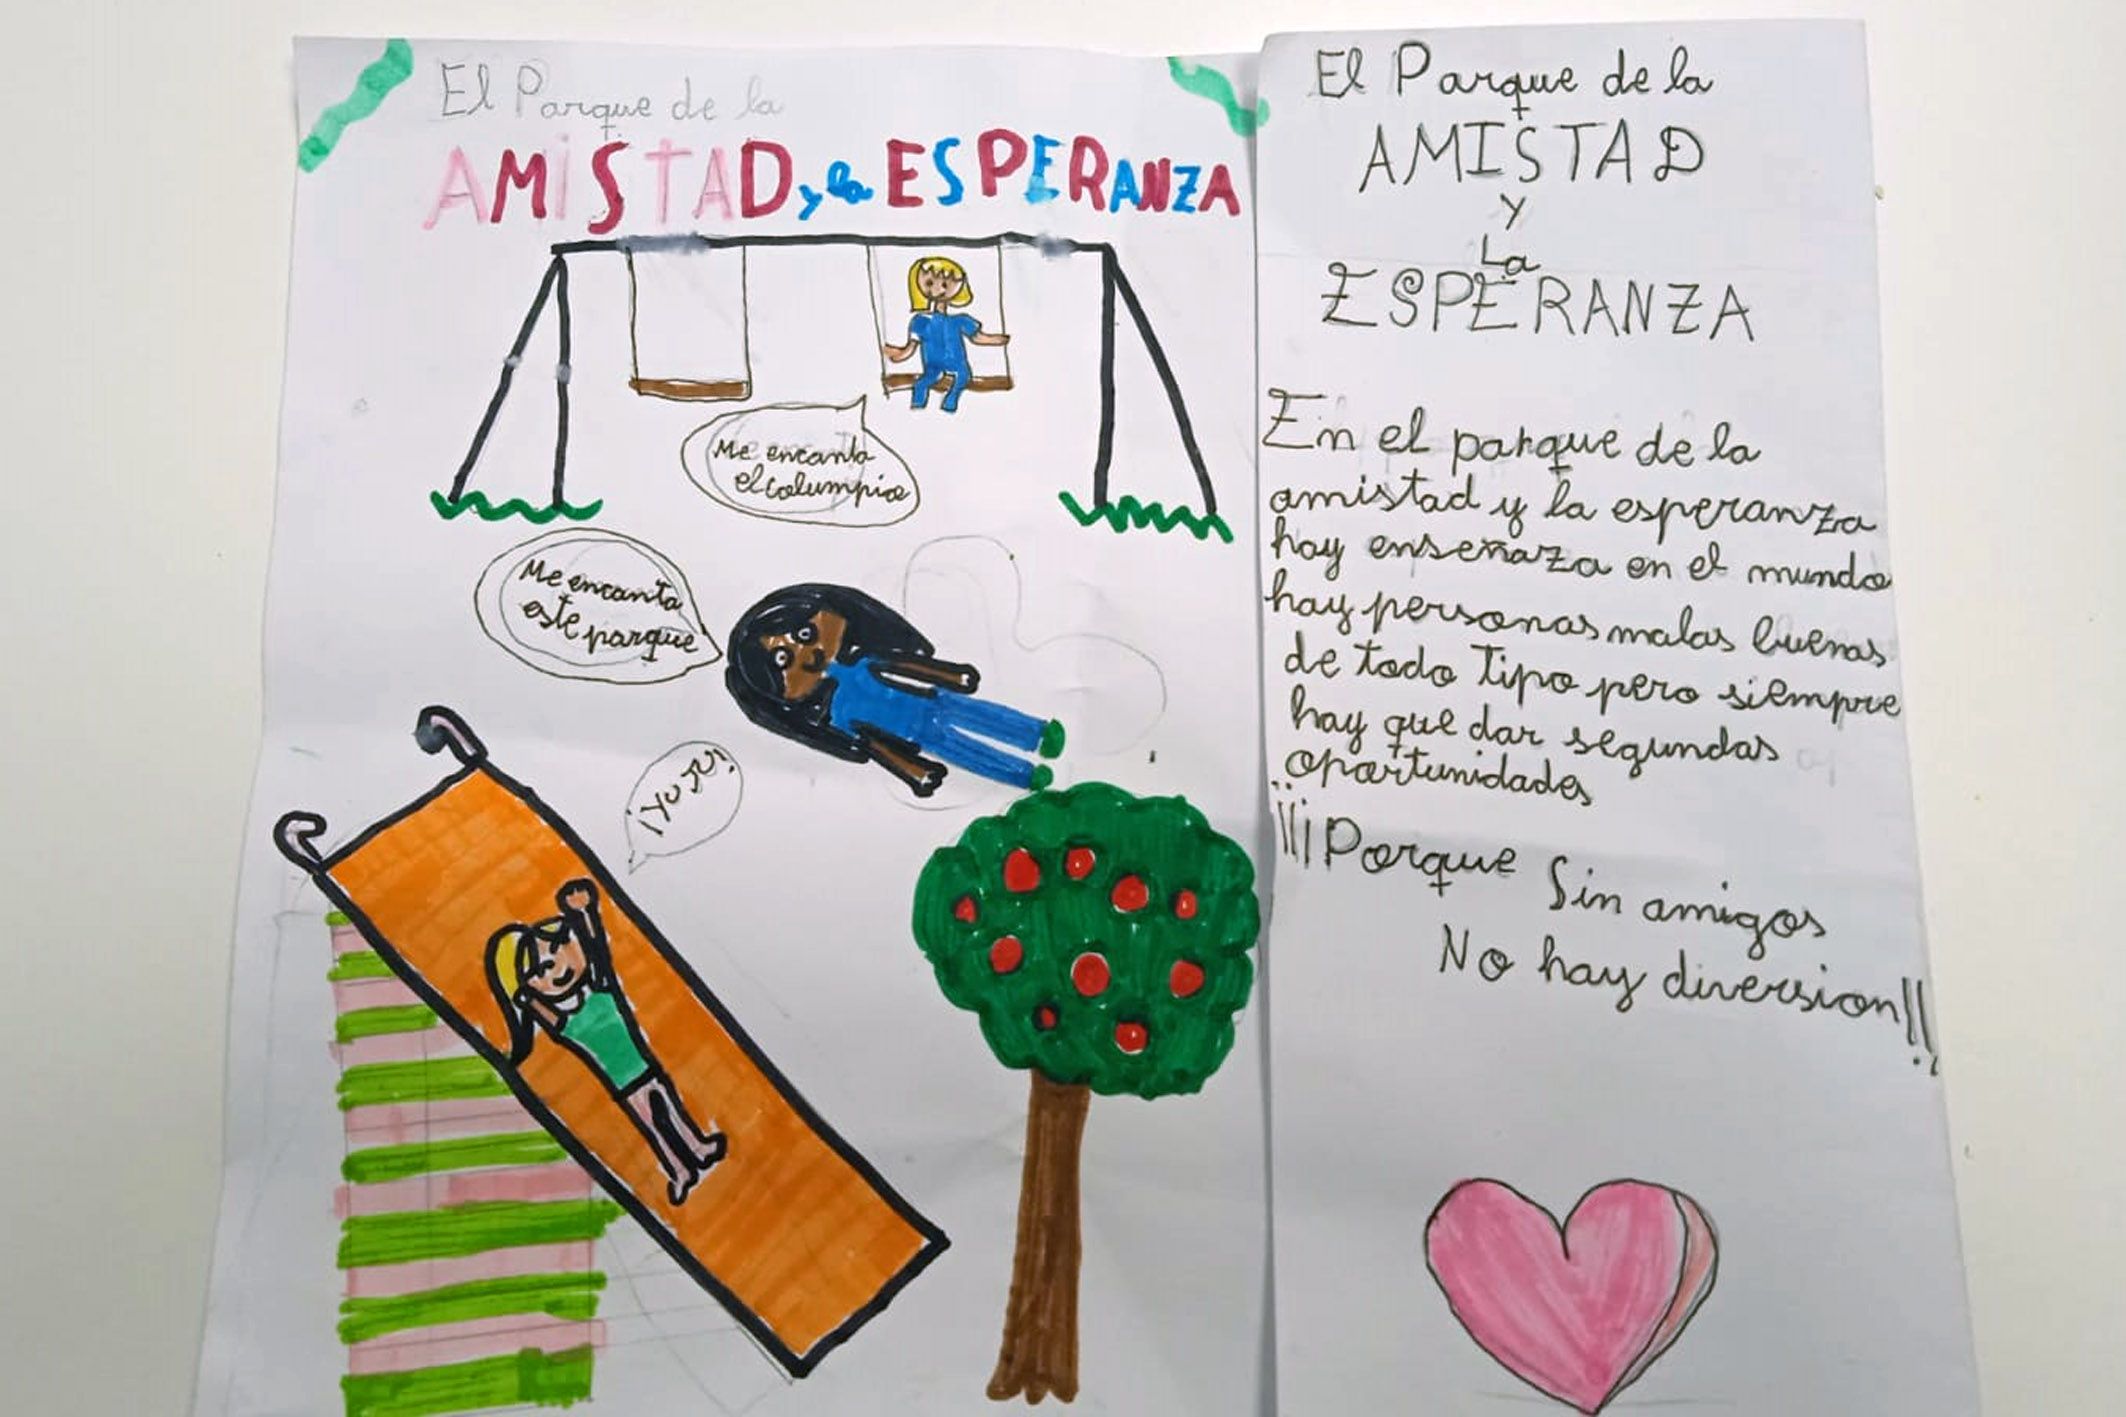 El Parque de la
AMISTAD y la ESPERANZA
Me encanta
el columpio
Me encanta
este parque
¡YUJU!
El Parque de la
AMISTAD
Y
La
ESPERANZA
En el parque de la
amistad y la esperanza
hay enseñaza en el mundo
hay personas malas buenas
de todo tipo pero siempre
hay que dar segundas
oportunidades
¡¡¡Porque Sin amigos
No hay diversion!!